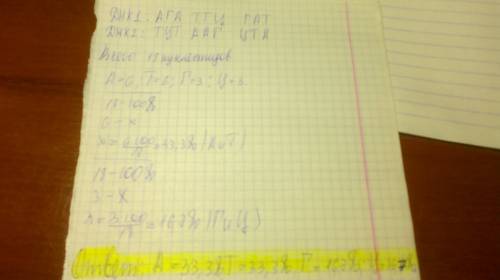 ДНК1: АГА ТТЦ ГАТ
ДНК2: ТЦТ ААГ ЦТА
Всего 18 нуклеотидов
А=6; Т=6; Г=3; Ц=3.
18-100%
6-х
х=6·100/18=33,3% (А и Т)
18-100%
3-х
х=3·100/18=16,7% (Г и Ц)
Ответ: А=33,3% Т=33,3%